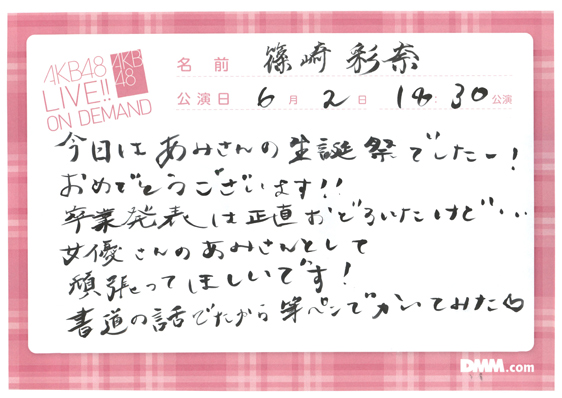 AKB48
LIVE!!
ON DEMAND
AKB
48
名前 篠崎 彩奈
公演日 6月2日 18:30公演
今日はあみさんの生誕祭でしたー!
おめでとうございます!!
卒業発表は正直おどろいたけど…
女優さんのあみさんとして
頑張ってほしいです!
書道の話でたから筆ペンでかいてみた♡
DMM.com